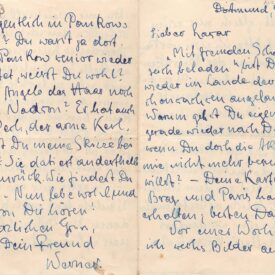 gentlich in Pankows
? Du warst ja dort.
Pankow senior wieder
tet, weisst Du wohl?
Angelo das Haar noch
Nadson? Er hat auch
Pech, der arme Kerl.
st Du meine Skizze bei
Sie datiert anderthalb
zurück. Wie findest Du
Nun lebe wohl, und
von Dir hören!
rzlichen Gruss,
Dein Freund
Werner
Dortmund
Lieber Lazar
"Mit fremden Schä
reich beladen" bist D
wieder im Lande der
chonachsen angelan
Warum gehst Du eigen
gerade wieder nach D
wenn Du doch die Ak
mie nicht mehr besu
willst? - Deine Kart
Prag und Paris ha
erhalten; besten Da
Vor einer Woch
ich sechs Bilder a